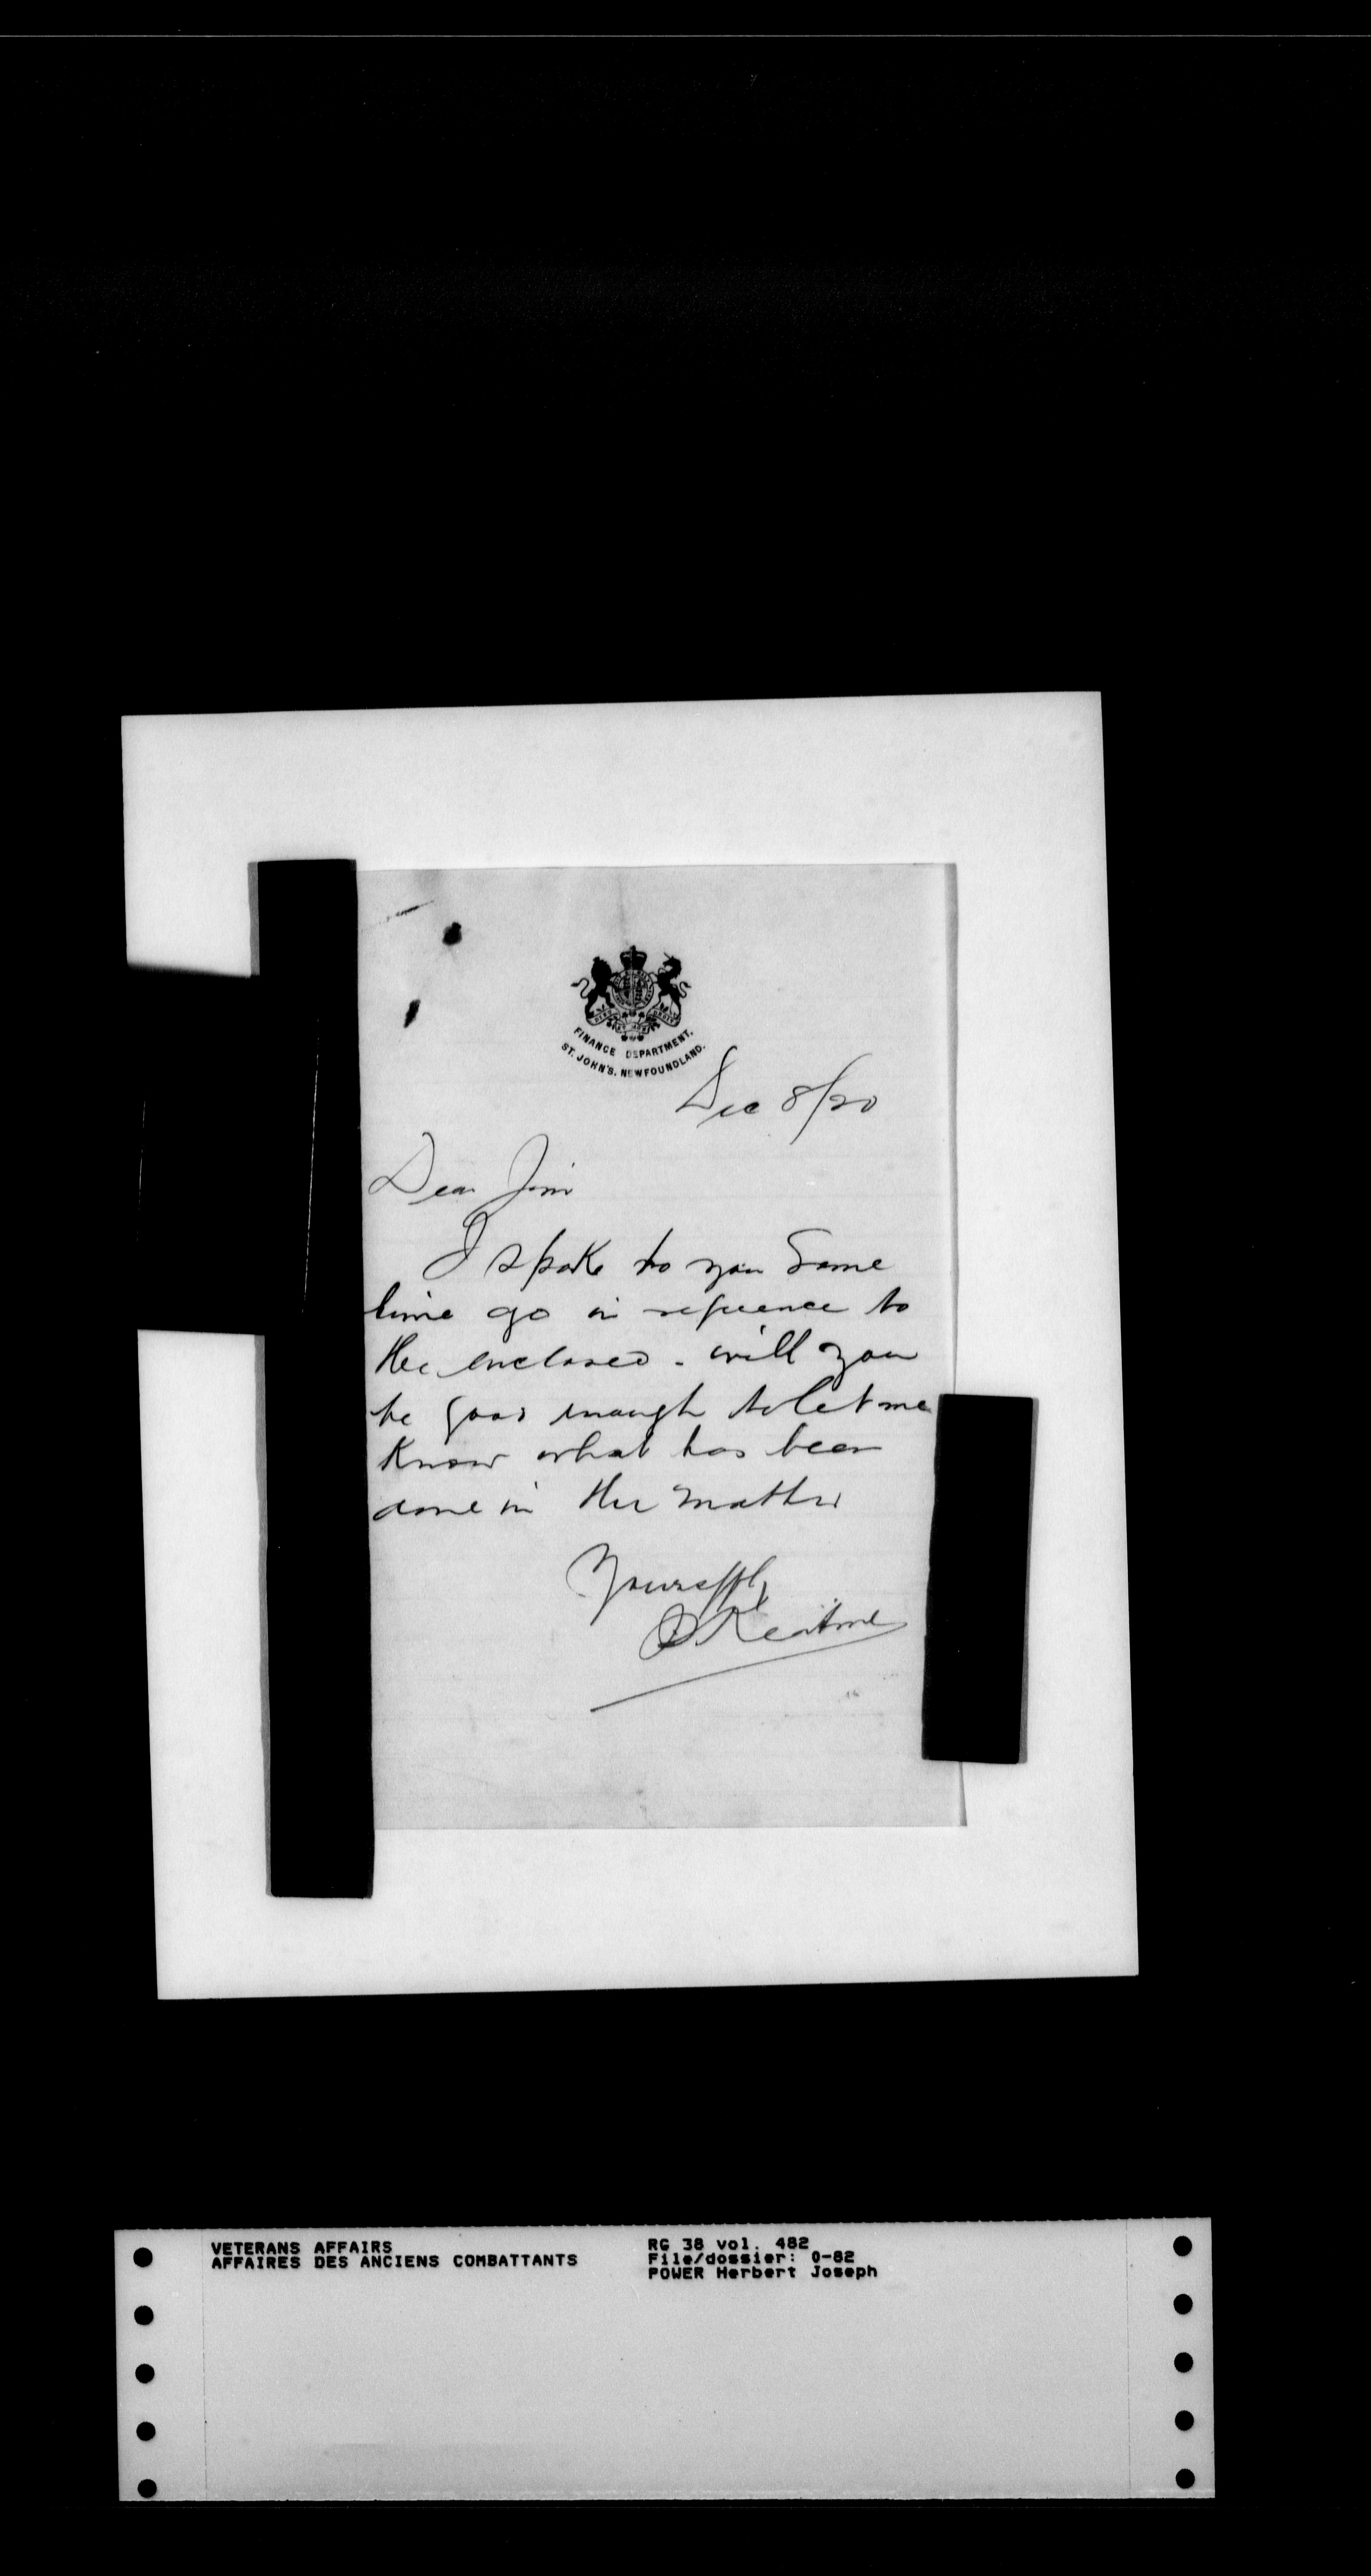 FINANCE DEPARTMENT.
ST. JOHN'S, NEWFOUNDLAND.
Dec 8/20
Dear Jim
I spoke to you Some
time ago in reference to
the enclosed. will you
be good enough to let me
Know what has been
done in the matter
Yours
VETERANS AFFAIRS
AFFAIRES DES ANCIENS COMBATTANTS
RG 38 vol. 482
File/dossier: 0-82
POWER Herbert Joseph